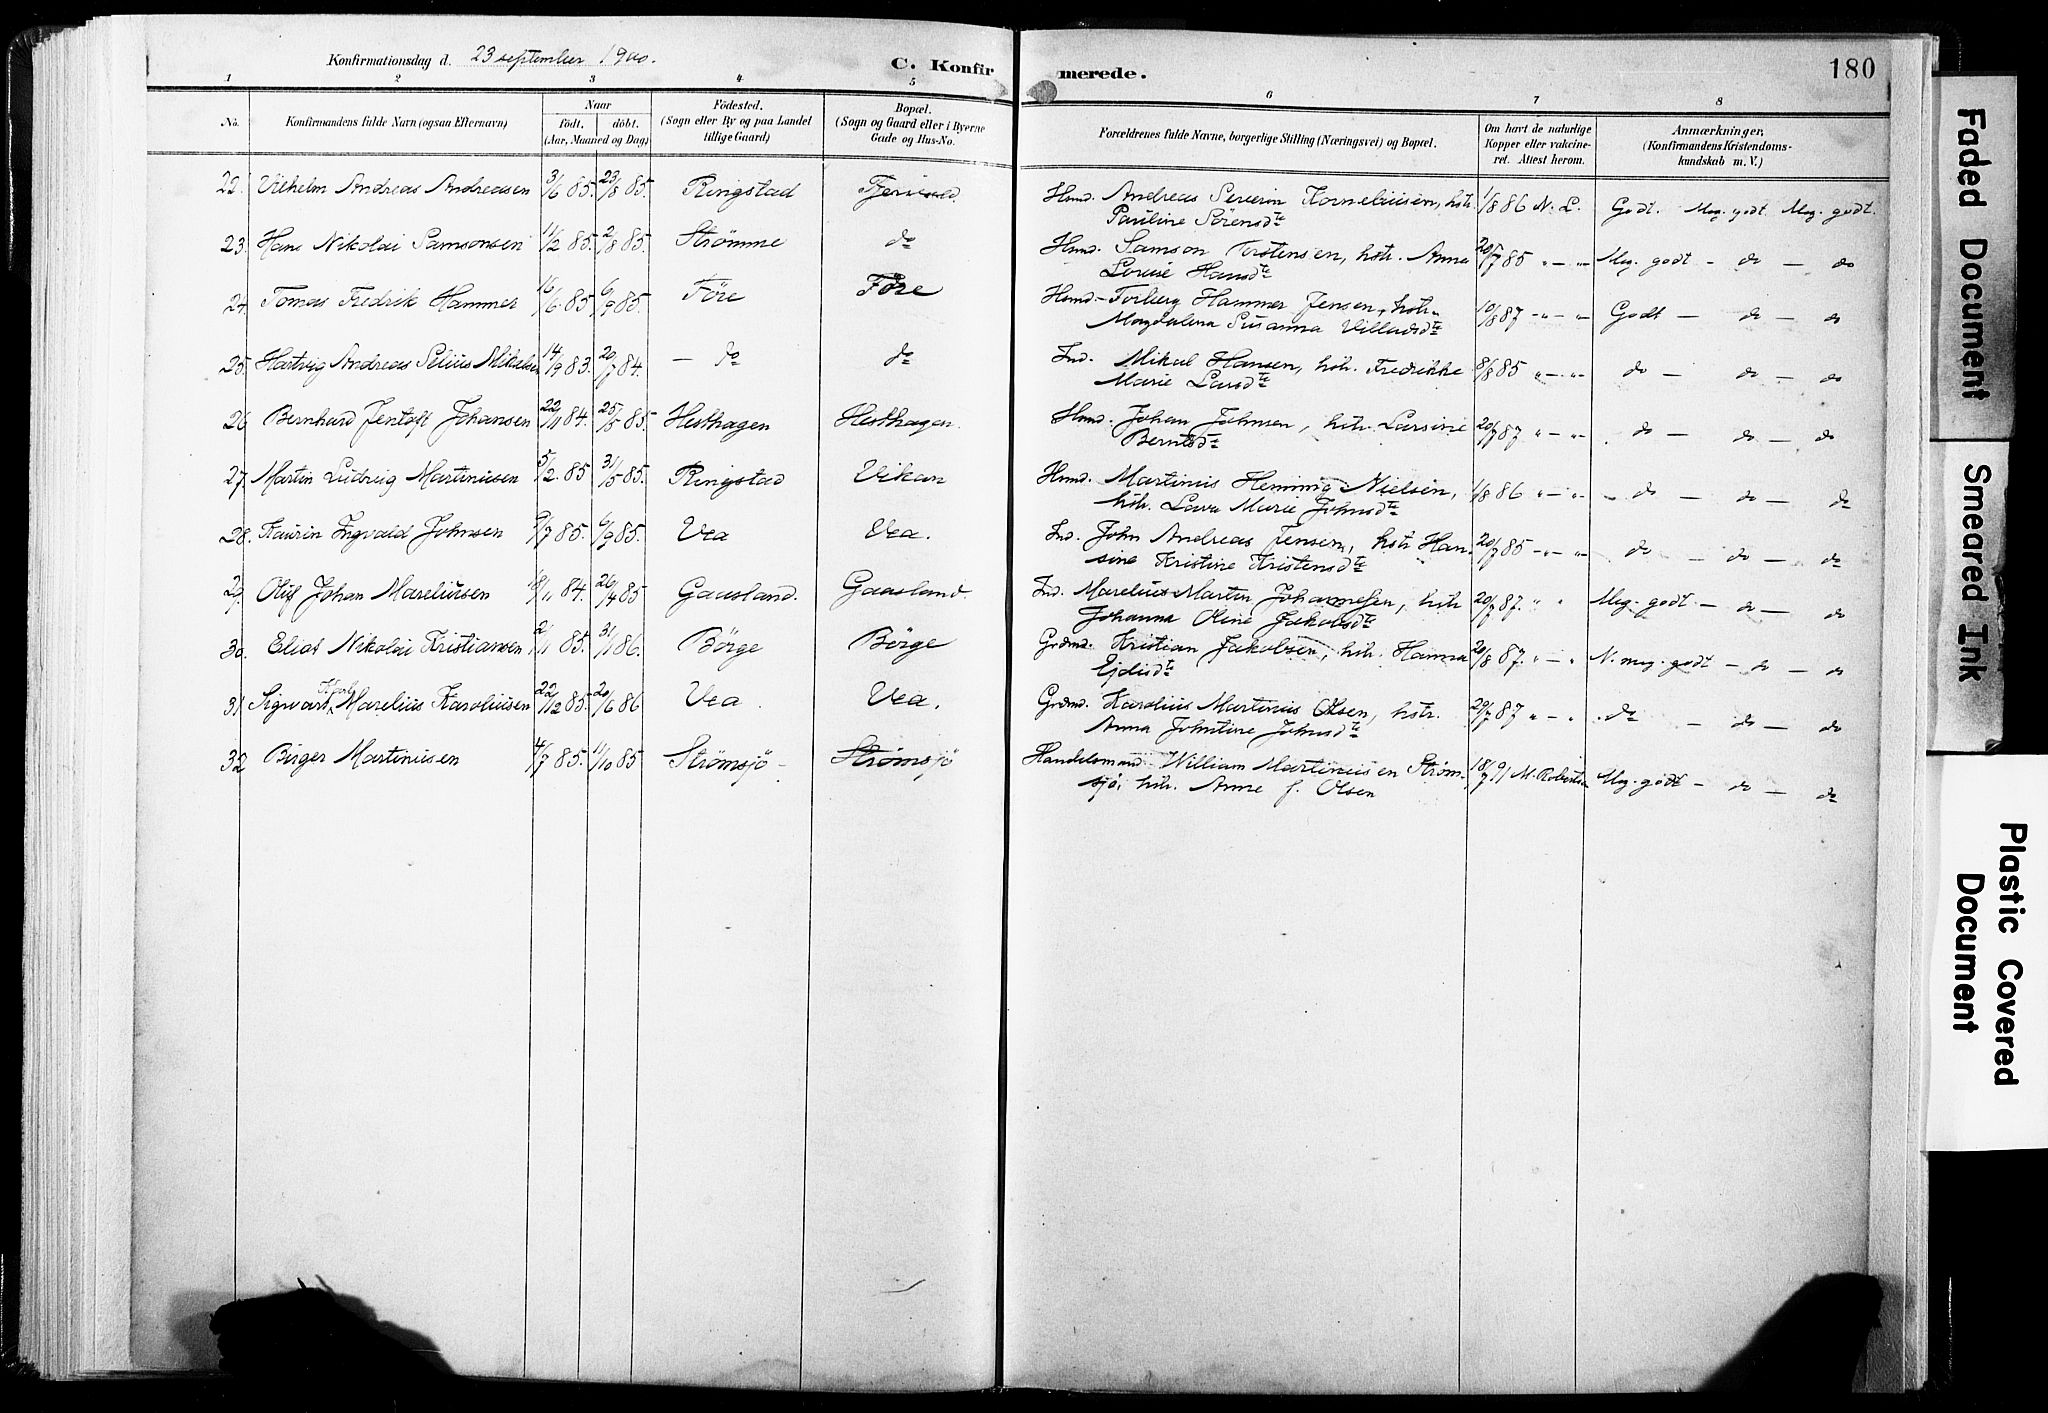 Konfirmationsdag d. 23 september 1900.
C. Konfirmerede.
180
1 2 3 4 5 6 7 8
No.
Konfirmandens fulde Navn (ogsaa Efternavn)
Naar
födt, döbt.
(Aar, Maaned og Dag)
Födested.
(Sogn eller By og paa Landet
tillige Gaard)
Bopæl.
(Sogn og Gaard eller i Byerne
Gade og Hus-No.
Forældrenes fulde Navne, borgerlige Stilling (Næringsvei) og Bopæl.
Om havt de naturlige
Kopper eller vakcine-
ret. Attest herom.
Anmærkninger,
(Konfirmandens Kristendoms-
kundskab m. V.)
22. Vilhelm Andreas Andreasen 3/6 85. 23/8 85. Ringstad Hmd. Andreas Severin Korneliusen, hstr. 1/8 86 N. L. Godt. Meg. godt Meg. godt.
Pauline Sörensdte
23. Hans Nikolai Samsonsen 11/2 85. 2/8 85. Strømme do Hmd. Samson Torstensen, hstr. Anna 20/7 85 " — " Meg. godt — do — do
Lovise Hansdte
24. Tomas Fredrik Hammer 16/6 85 6/9 85. Före Före Hmd. Torberg Hammer Jensen, hstr. 10/8 87 " — " Godt — do — do
Magdalena Susanna Villadsdte
25. Hartvig Andreas Selius Mikalsen 14/9 83. 20/7 84. — do do Ind. Mikal Hansen, hstr. Fredrikke 8/8 85 " — " do — do — do
Marie Larsdte
26. Bernhard Jentoft Johansen 22/11 84. 25/5 85. Hesthagen Hesthagen. Hmd. Johan Johnsen, hstr. Larsine 20/7 87 " — " do — do — do
Berntsdte
27. Martin Ludvig Martinusen 5/2 85 31/5 85. Ringstad Vikan Hmd. Martinus Henning Nielsen, 1/8 86 " — " do — do — do
hstr. Lava Marie Johnsdte
28. Kaurin Ingvald Johnsen 9/7 85. 6/9 85. Vea Vea. Ind. John Andreas Jensen, hstr Han- 20/7 85 " — " do — do — do
sine Kristine Kristensdte
29. Oluf Johan Mareliusen 18/11 84. 26/4 85 Gaasland. Gaasland. Ind. Marelius Martin Johannesen, hstr 20/7 87. " " Meg. godt — do — do
Johanna Oline Jakobsdte
30. Elias Nikolai Kristiansen 2/11 85. 31/1 86. Börge Börge Grdmd. Kristian Jakobsen, hstr. Hanna 20/8 87. " — " N. meg. godt — do — do
Ejdisdte
31. Sigvart Marelius Karoliusen 22/12 85. 20/6 86 Vea. Vea. Grdmd. Karolius Martinus Olsen, hstr. 29/7 87 " — " do — do — do
Anna Johntine Johnsdte
32. Birger Martinusen 4/7 85. 11/10 85 Strømsjö — Strømsjö Handelsmand William Martinusen Strøm- 18/7 91 M. Robertsen Meg. godt — do — do
sjö, hstr. Anne f. Olsen
Faded Document
Smeared Ink
Plastic Covered
Document